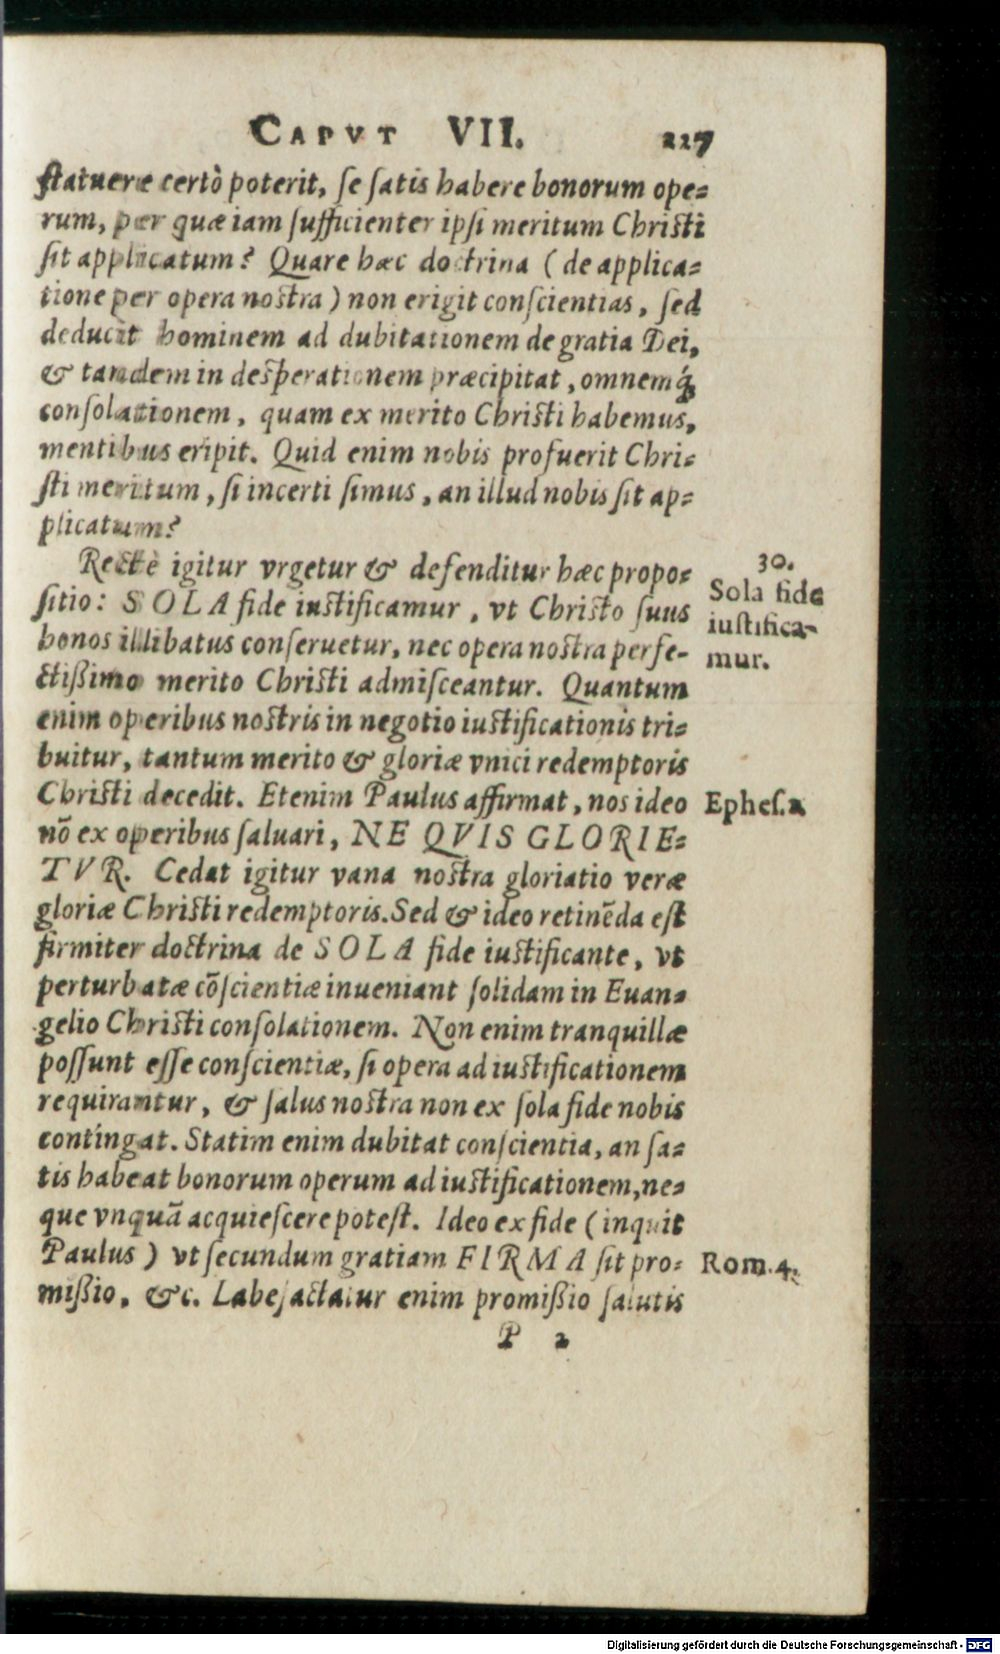 CAPVT VII. 227
ſtatuere certò poterit, ſe ſatis habere bonorum ope=
rum, per quæ iam ſufficienter ipſi meritum Chriſti
ſit applicatum? Quare hæc doctrina ( de applica=
tione per opera noſtra ) non erigit conſcientias, ſed
deducit hominem ad dubitationem de gratia Dei,
& tandem in deſperationem præcipitat, omnemq́;
conſolationem, quam ex merito Chriſti habemus,
mentibus eripit. Quid enim nobis profuerit Chri=
ſti meritum, ſi incerti ſimus, an illud nobis ſit ap=
plicatum?
Rectè igitur vrgetur & defenditur hæc propo=
ſitio: SOLA fide iuſtificamur, vt Chriſto ſuus
honos illibatus conſeruetur, nec opera noſtra perfe-
ctißimo merito Chriſti admiſceantur. Quantum
enim operibus noſtris in negotio iuſtificationis tri=
buitur, tantum merito & gloriæ vnici redemptoris
Chriſti decedit. Etenim Paulus affirmat, nos ideo
nõ ex operibus ſaluari, NE QVIS GLORIE=
TVR. Cedat igitur vana noſtra gloriatio veræ
gloriæ Chriſti redemptoris. Sed & ideo retinẽda eſt
firmiter doctrina de SOLA fide iuſtificante, vt
perturbatæ cõſcientiæ inueniant ſolidam in Euan=
gelio Chriſti conſolationem. Non enim tranquillæ
poſſunt eſſe conſcientiæ, ſi opera ad iuſtificationem
requirantur, & ſalus noſtra non ex ſola fide nobis
contingat. Statim enim dubitat conſcientia, an ſa=
tis habeat bonorum operum ad iuſtificationem, ne=
que vnquã acquieſcere poteſt. Ideo ex fide ( inquit
Paulus ) vt ſecundum gratiam FIRMA ſit pro=
mißio, &c. Labefactatur enim promißio ſalutis
P 2
30.
Sola fide
iuſtifica-
mur.
Epheſ. 2
Rom. 4.
Digitalisierung gefördert durch die Deutsche Forschungsgemeinschaft - DFG